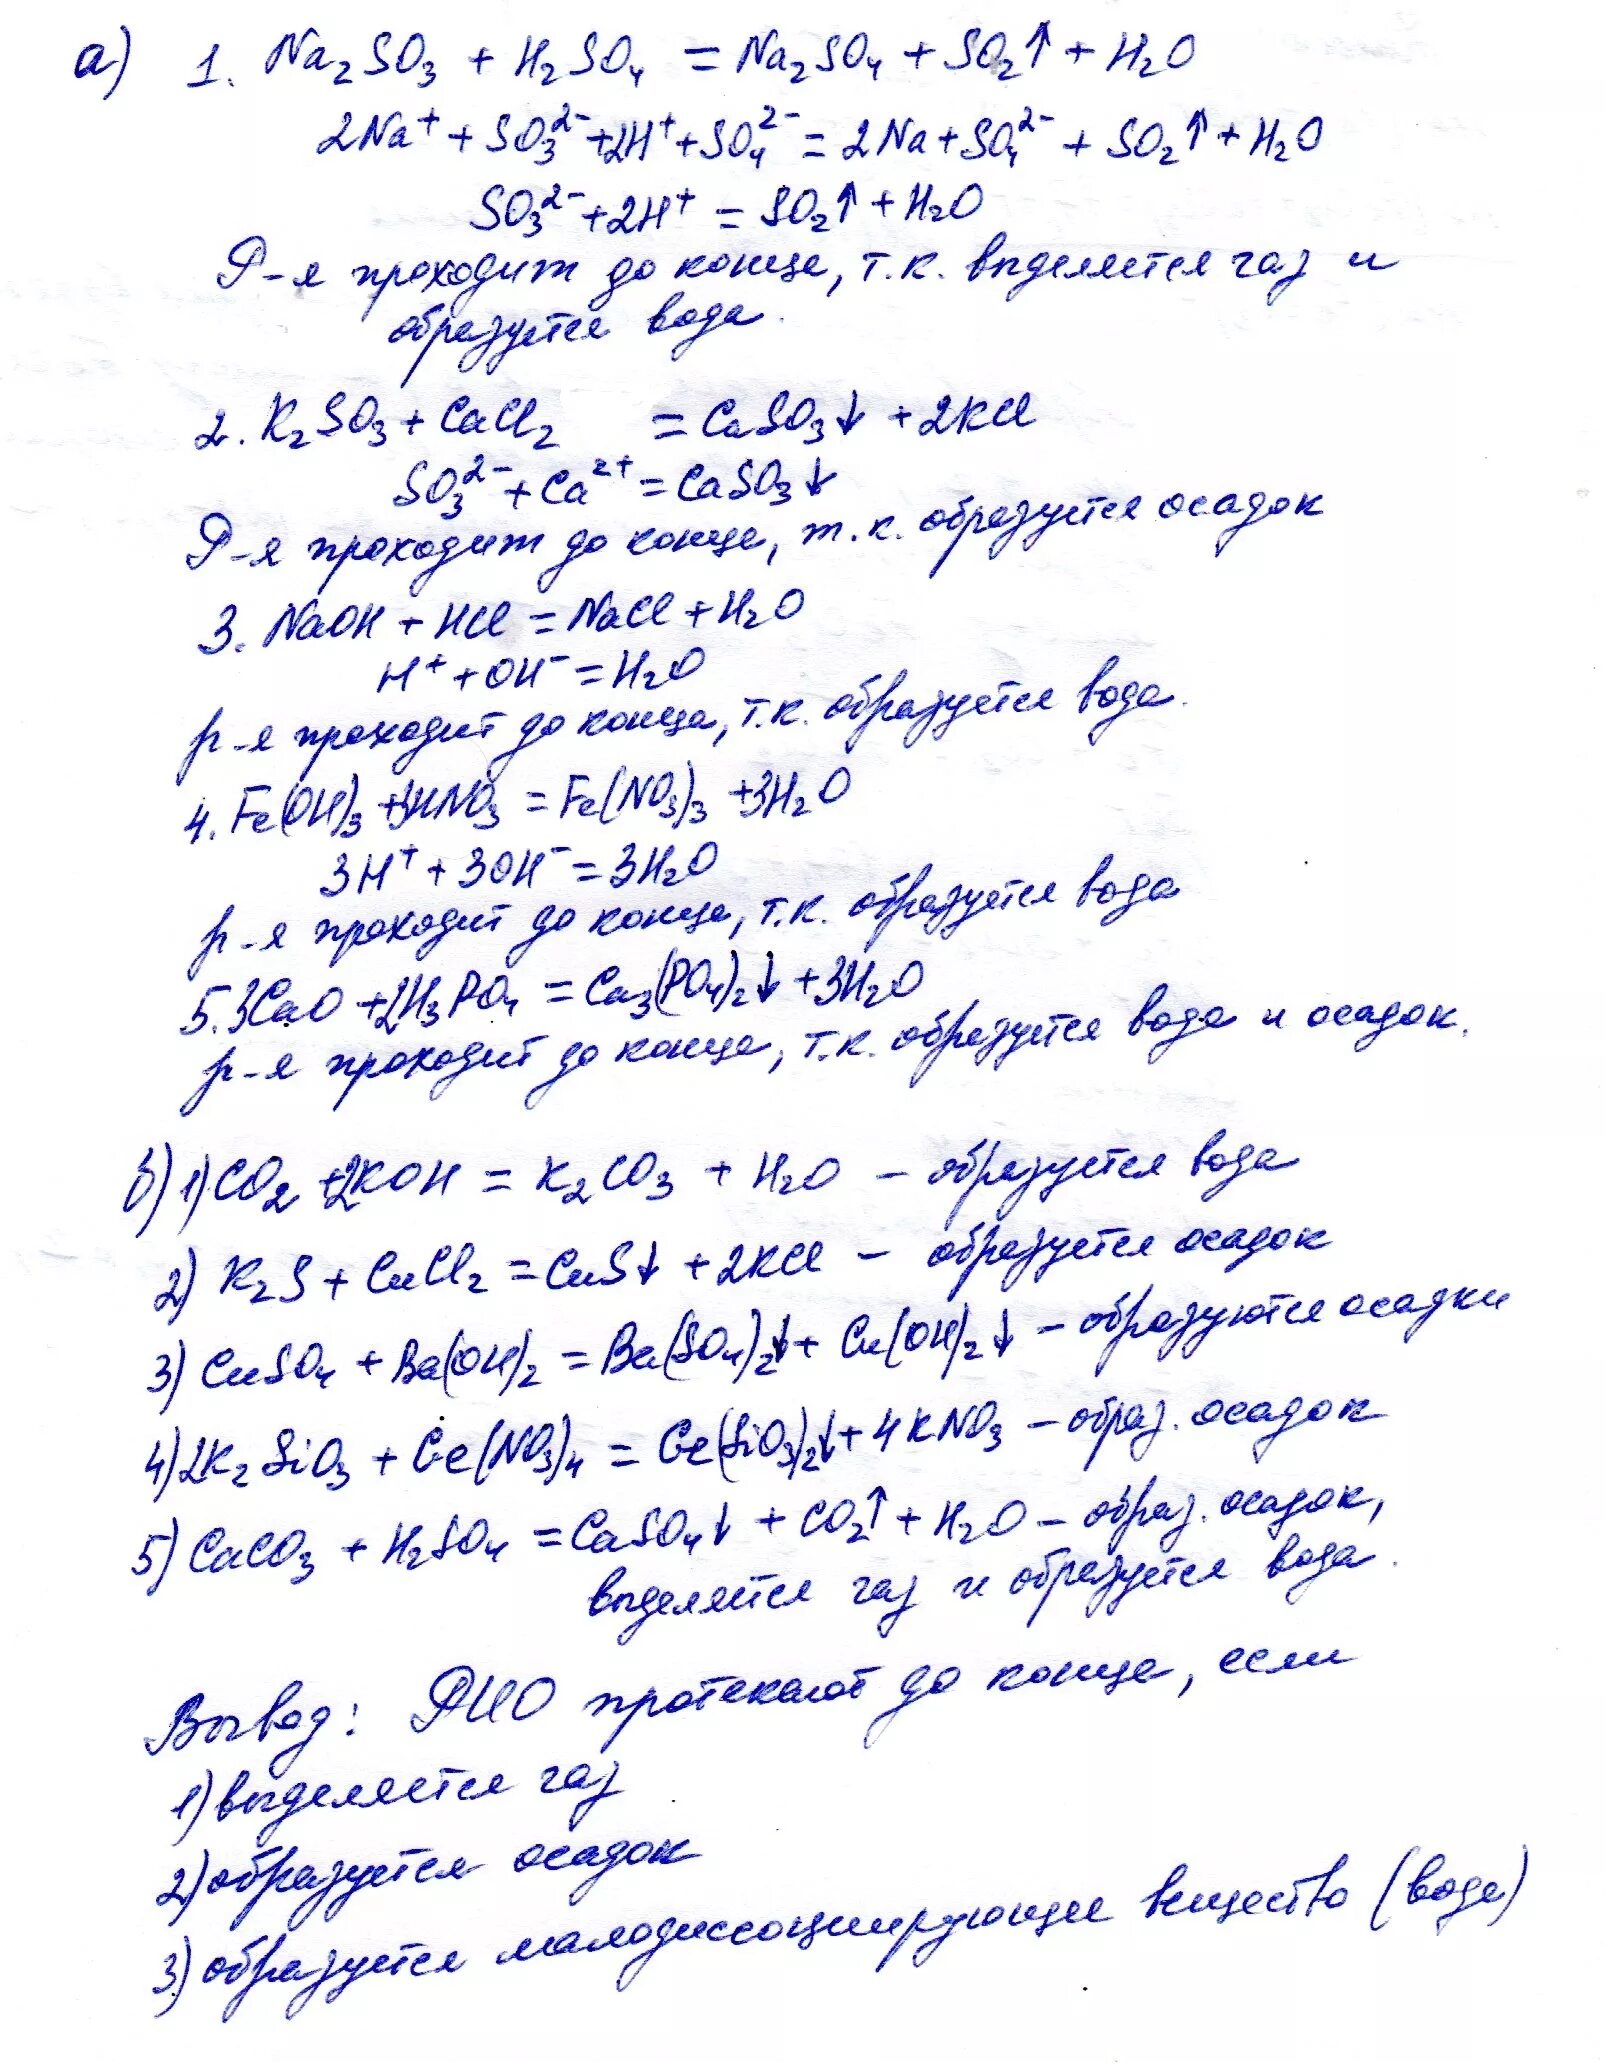 а) 1. Na₂SO₃ + H₂SO₄ = Na₂SO₄ + SO₂↑ + H₂O
2Na⁺ + SO₃²⁻ + 2H⁺ + SO₄²⁻ = 2Na + SO₄²⁻ + SO₂↑ + H₂O
SO₃²⁻ + 2H⁺ = SO₂↑ + H₂O
Р-я проходит до конца, т.к. выделяется газ и
образуется вода.
2. K₂SO₃ + CaCl₂ = CaSO₃↓ + 2KCl
SO₃²⁻ + Ca²⁺ = CaSO₃↓
Р-я проходит до конца, т.к. образуется осадок
3. NaOH + HCl = NaCl + H₂O
H⁺ + OH⁻ = H₂O
р-я проходит до конца, т.к. образуется вода.
4. Fe(OH)₃ + 3HNO₃ = Fe(NO₃)₃ + 3H₂O
3H⁺ + 3OH⁻ = 3H₂O
р-я проходит до конца, т.к. образуется вода
5. 3CaO + 2H₃PO₄ = Ca₃(PO₄)₂↓ + 3H₂O
р-я проходит до конца, т.к. образуется вода и осадок.
б) 1) CO₂ + 2KOH = K₂CO₃ + H₂O – образуется вода
2) K₂S + CuCl₂ = CuS↓ + 2KCl – образуется осадок
3) CuSO₄ + Ba(OH)₂ = Ba(SO₄)₂↓ + Cu(OH)₂↓ – образуются осадки
4) 2K₂SiO₃ + Ge(NO₃)₄ = Ge(SiO₃)₂↓ + 4KNO₃ – образ. осадок
5) CaCO₃ + H₂SO₄ = CaSO₄↓ + CO₂↑ + H₂O – образ. осадок,
выделяется газ и образуется вода.
Вывод: РИО протекают до конца, если
1) выделяется газ
2) образуется осадок
3) образуется малодиссоциирующее вещество (вода)